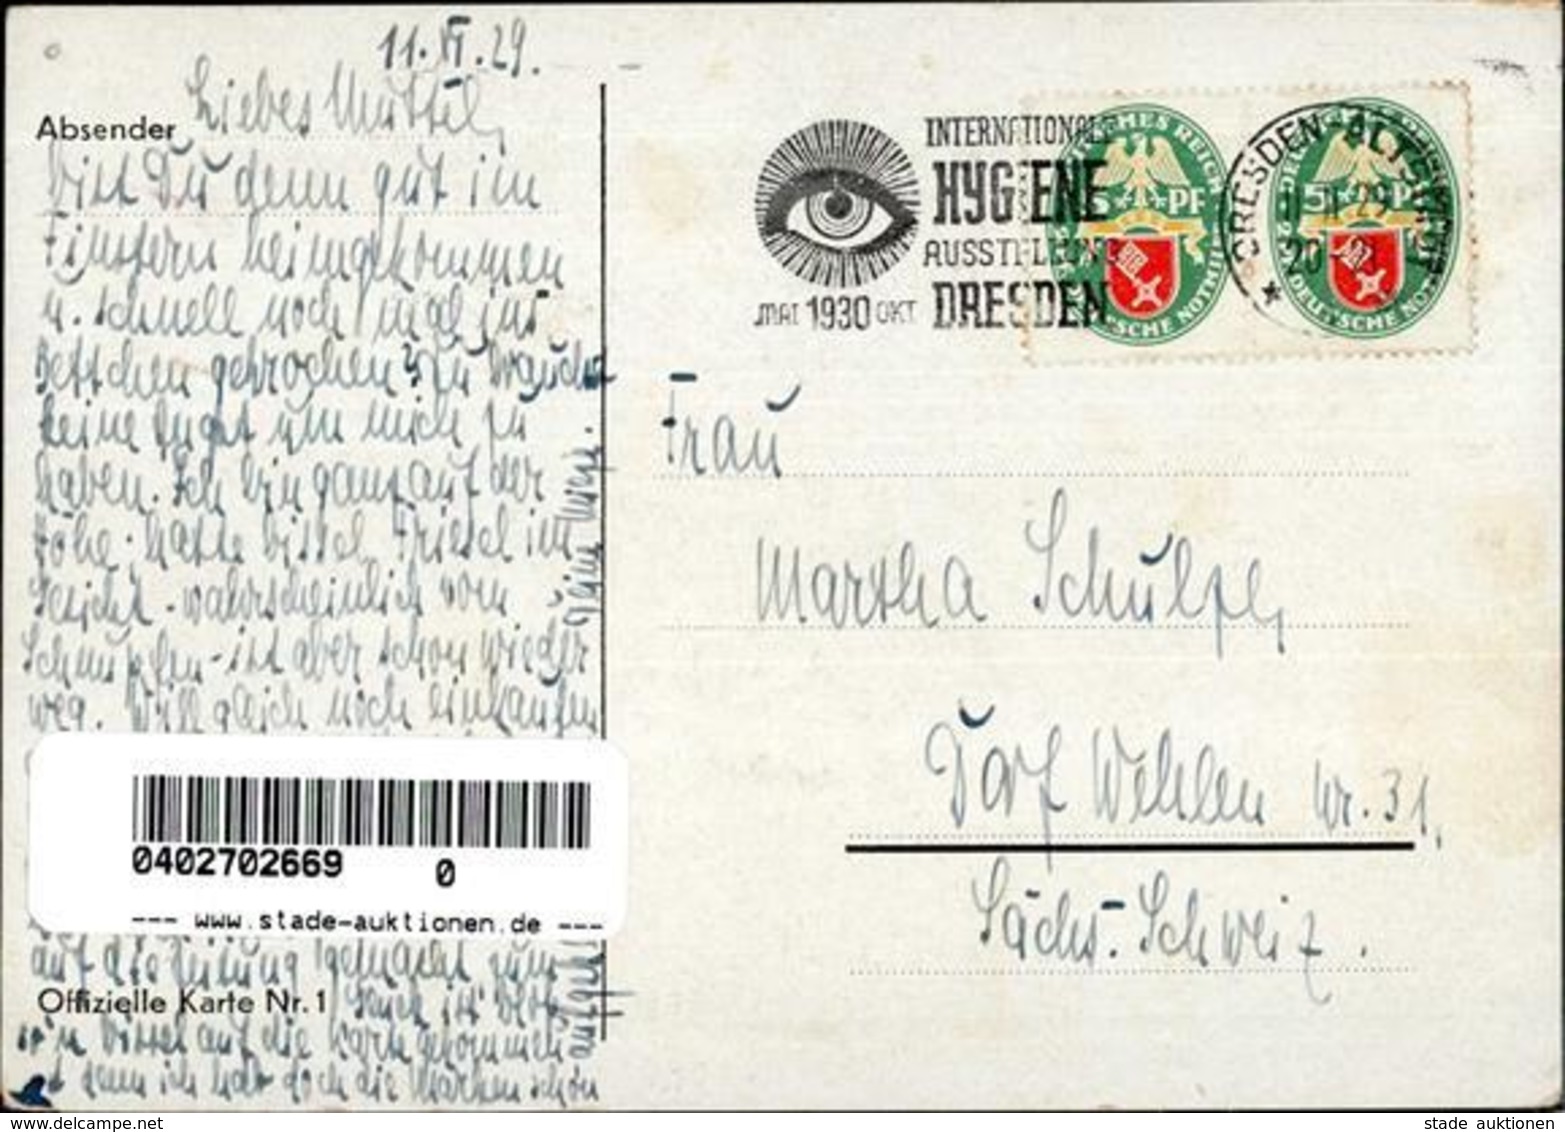 11.VI.29.
Liebes Muttel,
Absender
bist Du denn gut im
Finstern heimgekommen
u. schnell noch mal ins
Bettchen gekrochen? Du brauchst
keine Angst um mich zu
haben. Ich bin ganz auf der
Höhe. hatte bissel Friesel im
Gesicht - wahrscheinlich vom
Schnupfen - ist aber schon wieder
weg. Will gleich noch einkaufen
auf die Zeitung gemacht zum
Offizielle Karte Nr. 1
bissel auf die Karte gekommen
denn ich hab doch die Marken schon
INTERNATIONALE
HYGIENE
AUSSTELLUNG
DRESDEN
MAI 1930 OKT
DRESDEN-ALTSTADT
29
20-21
5 PF
5 PF
Frau
Martha Schulze,
Dorf Wehlen Nr. 31,
Sächs. Schweiz.
0402702669 0
--- www.stade-auktionen.de ---
www.delcampe.net
stade auktionen